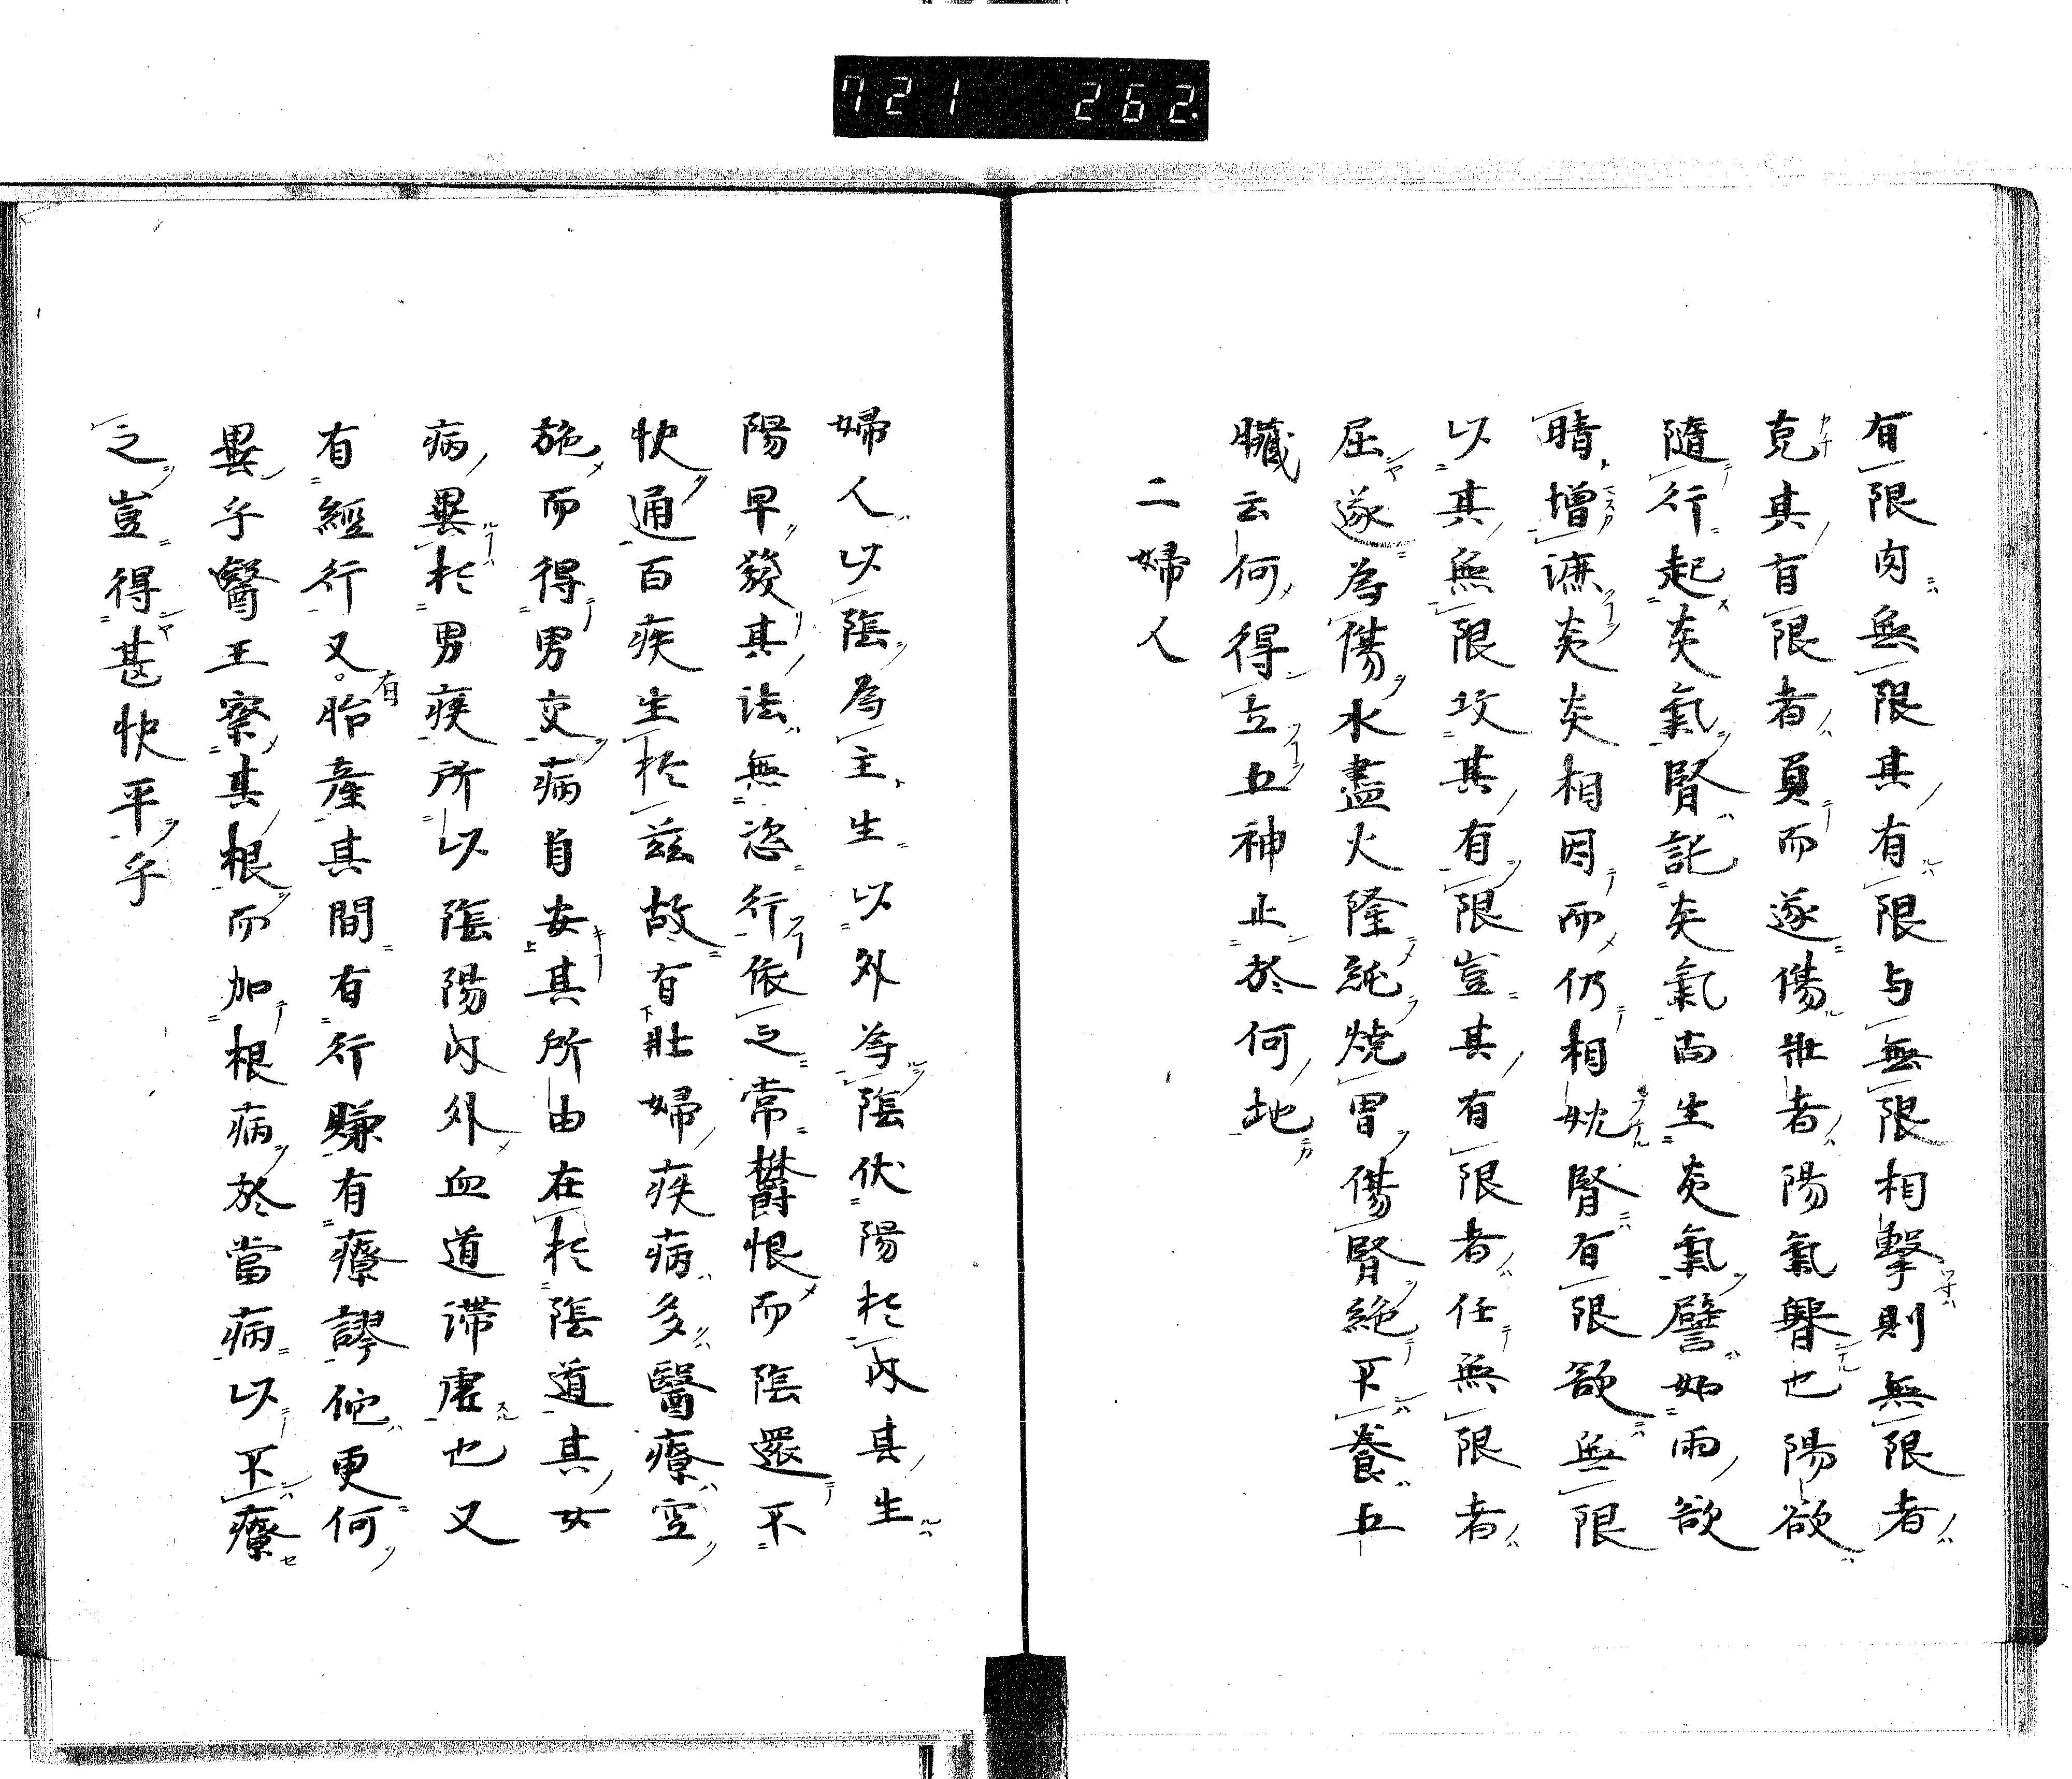 721 262.
有限肉無限其有限与無限相擊則無限者
克其有限者負而遂傷壯者陽氣㬜也陽欲
隨行起炎氣腎託炎氣而生炎氣譬如雨欲
晴增漉炎炎相因而仍相妣腎有限欲無限
以其無限攻其有限豈其有限者任無限者
屈遂為傷水盡火隆純燒胃傷腎絶不養五
臟云何得立五神止於何地
二婦人
婦人以陰為主生以外為陰伏陽於內其生
陽早發其法無恣行依之常欝恨而陰還不
快通百疾生於兹故有壯婦疾病多醫療空
施而得男交病自安其所由在於陰道其女
病異於男疾所以陰陽內外血道滞虚也又
有經行又有胎產其間有行賺有療謬他更何
異乎醫王察其根而加根病於當病以不療
之豈得甚快平乎